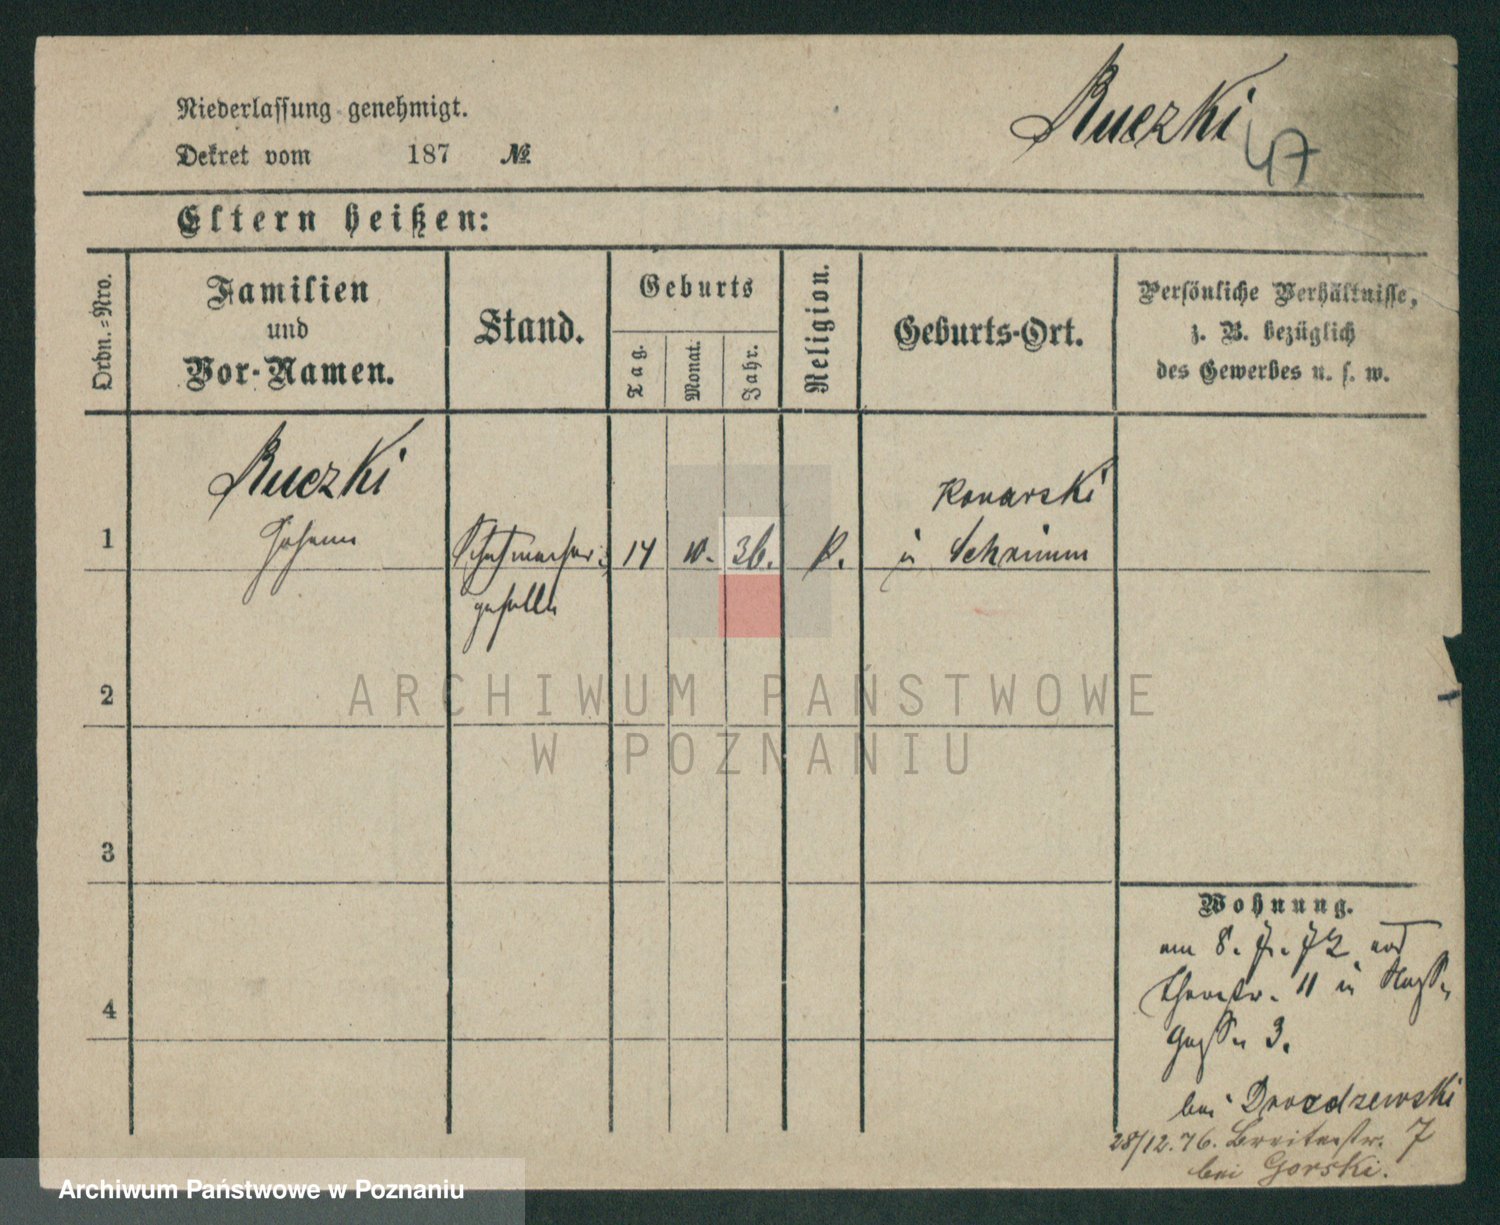 Niederlassung genehmigt.
Dekret vom 187 №
Ruczki
47
Eltern heißen:
Ordn.=Nro.
Familien
und
Vor-Namen.
Stand.
Geburts
Tag.
Monat.
Jahr.
Religion.
Geburts-Ort.
Persönliche Verhältnisse,
z. B. bezüglich
des Gewerbes u. s. w.
1
Ruczki
Johann
Schuhmacher
geselle
14
10.
36.
k.
Konarski
in Schrimm
2
ARCHIWUM PAŃSTWOWE
W POZNANIU
3
4
Wohnung.
am 8. 7. 72
11 in
Gasse 3.
bei Drozdzewski
28/12.76. Breitestr. 7
bei Gorski.
Archiwum Państwowe w Poznaniu